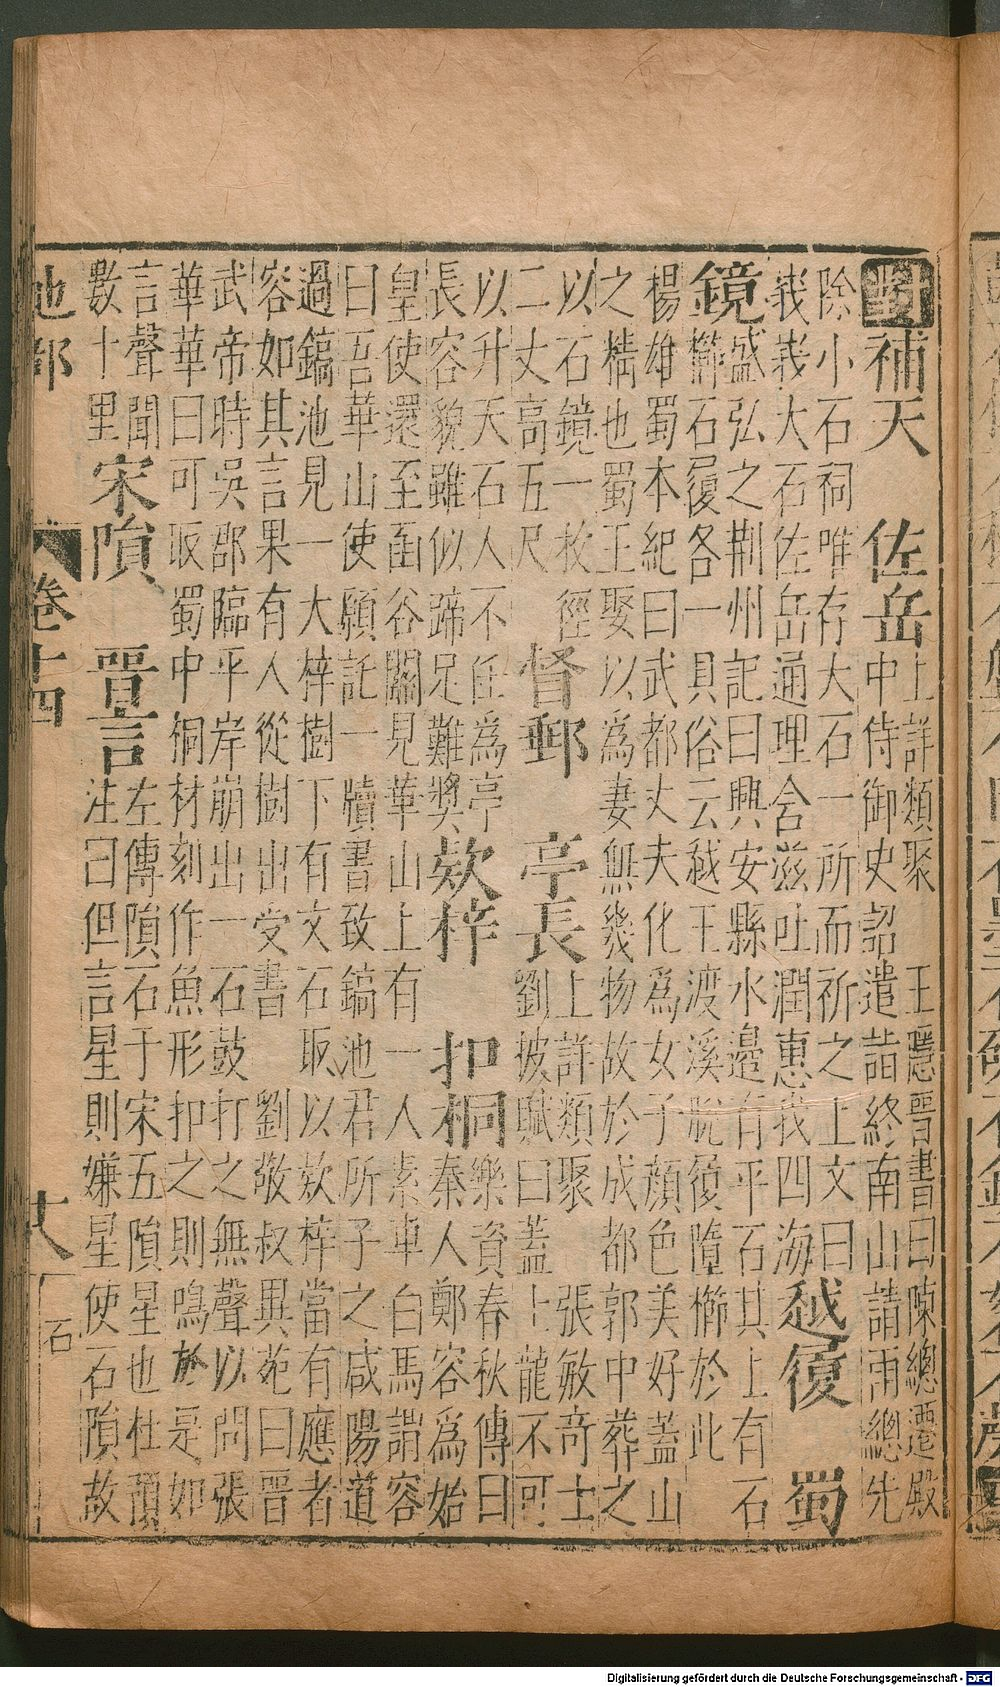 對 補天 佐岳
上詳類聚 王隱晉書曰陳總遷殿
中侍御史詔遣詣終南山請雨總先
除小石祠唯存大石一所而祈之上文曰
峩峩大石佐岳通理含滋吐潤惠我四海
越履 蜀
鏡
盛弘之荆州記曰興安縣水邉有平石其上有石
櫛石履各一具俗云越王渡溪脫履墮櫛於此
楊雄蜀本紀曰武都丈夫化為女子顔色美好蓋山
之精也蜀王娶以為妻無幾物故於成都郭中葬之
以石鏡一枚徑
二丈高五尺
督郵 亭長
上詳類聚 張敏奇士
劉披賦曰蓋上龍不可
以升天石人不任為亭
長容貌雖似蹄足難奬
欸梓 扣桐
樂資春秋傳曰
秦人鄭容為始
皇使還至函谷關見華山上有一人素車白馬謂容
曰吾華山使願託一牘書致鎬池君所子之咸陽道
過鎬池見一大梓樹下有文石取以欸梓當有應者
容如其言果有人從樹出受書 劉敬叔異苑曰晉
武帝時吳郡臨平岸崩出一石鼓打之無聲以問張
華華曰可取蜀中桐材刻作魚形扣之則鳴於是如
言聲聞
數十里
宋隕 晉言
左傳隕石于宋五隕星也杜預
注曰但言星則嫌星使石隕故
地部 卷十四 十八 石
Digitalisierung gefördert durch die Deutsche Forschungsgemeinschaft - DFG